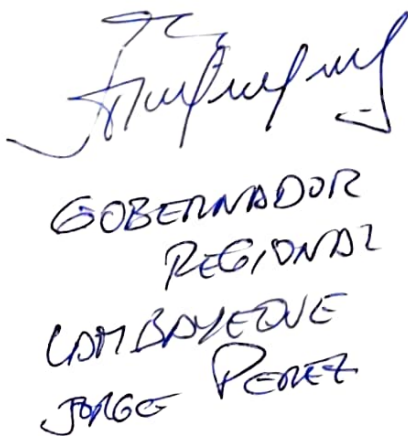 GOBERNADOR
REGIONAL
LAMBAYEQUE
JORGE PEREZ